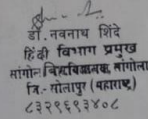 डॉ. नवनाथ शिंदे
हिंदी विभाग प्रमुख
सांगोला सांगोला
जि. सोलापूर (महाराष्ट्र)
८३२९६९३४०८